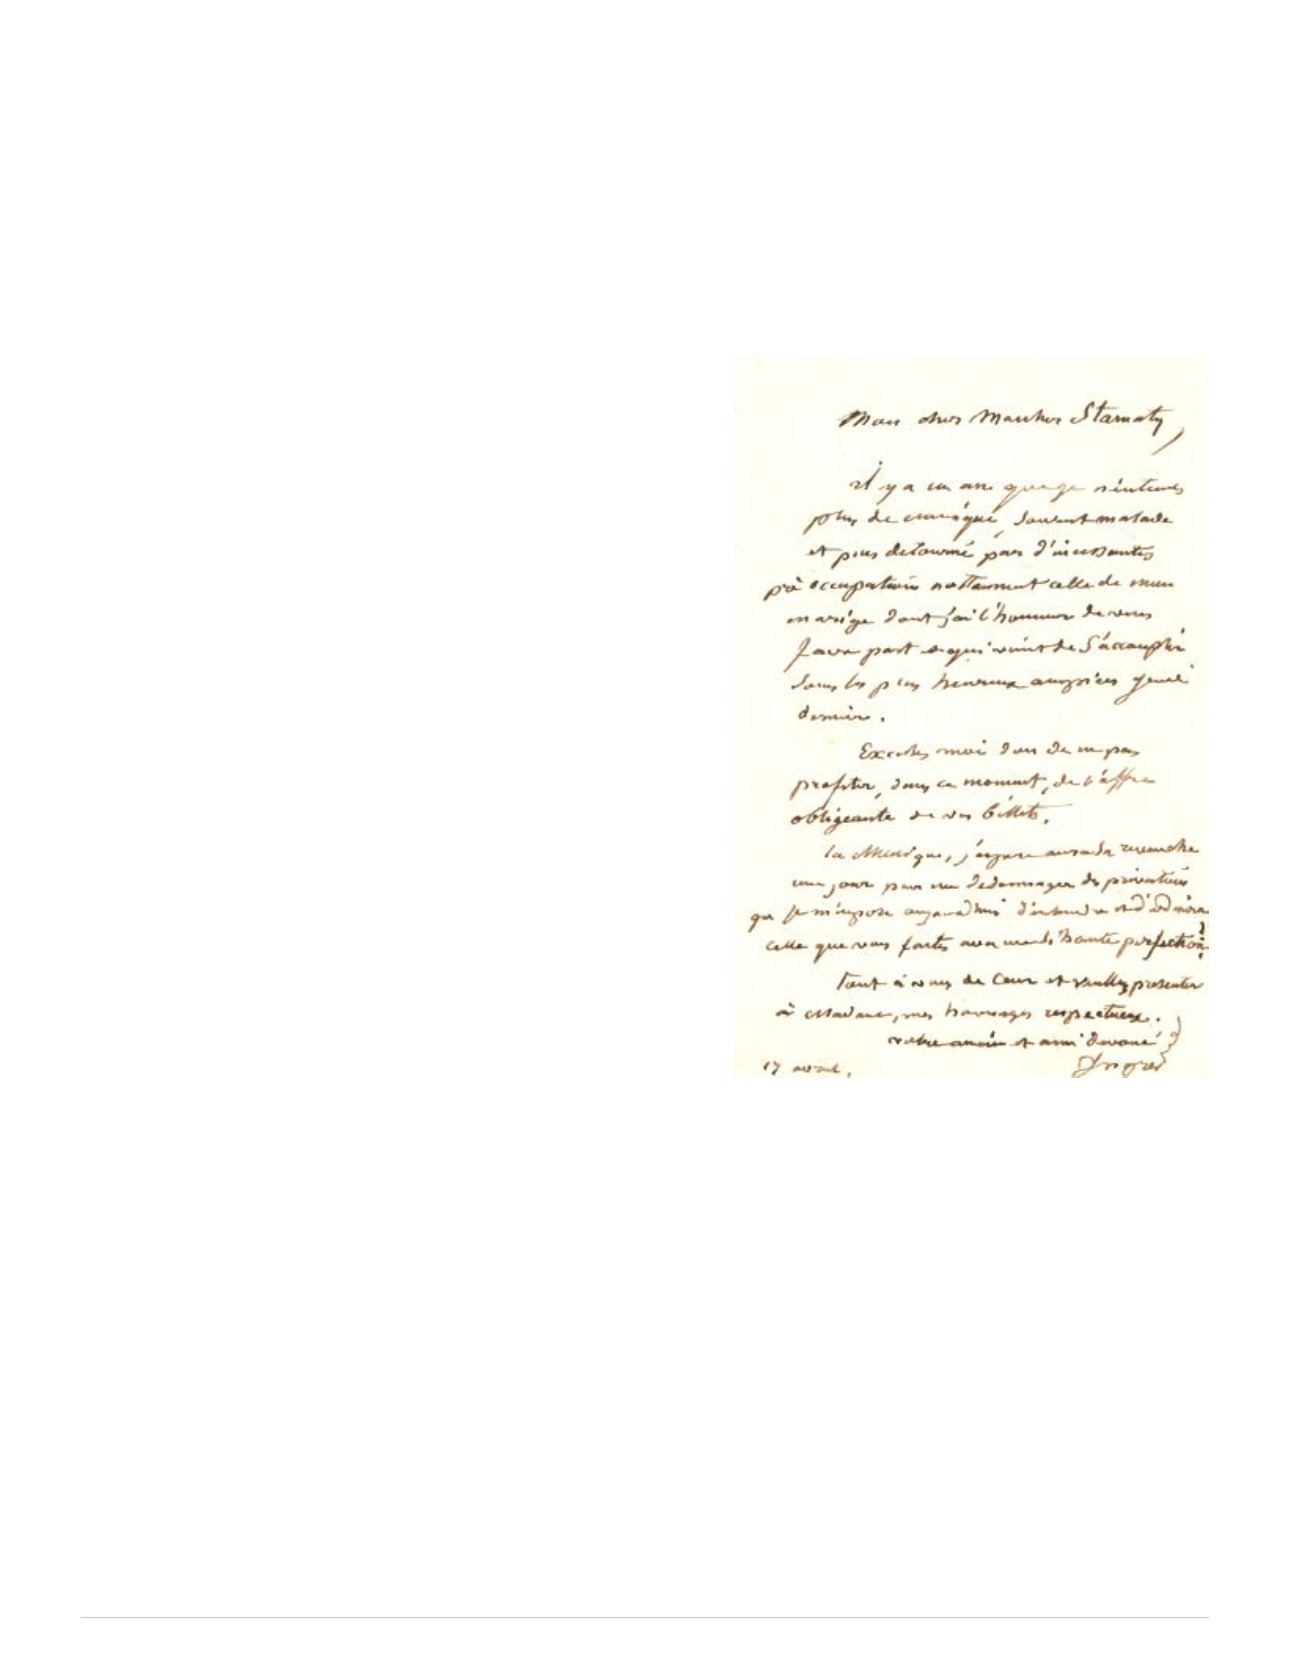 Mon cher Monsieur Stamaty,
il y a un an que je n'entends
plus de musique, souvent malade
et puis detourné par d'incessantes
préoccupations nottamment celle de mon
mariage dont j'ai l'honneur de vous
faire part et qui vient de s'accomplir
sous les plus heureux auspices jeudi
dernier.
Excuses moi donc de ne pas
profiter, dans ce moment, de l'offre
obligeante de vos billets.
la Musique, j'espere aura sa revanche
un jour pour me dedommager des privations
que je m'impose aujourd'hui d'entendre et d'admirer
celle que vous faites avec une si haute perfection
Tout à vous de Cœur et veuillez presenter
à Madame, mes hommages respectueux.
votre ancien et ami devoué
17 avril. Ingres